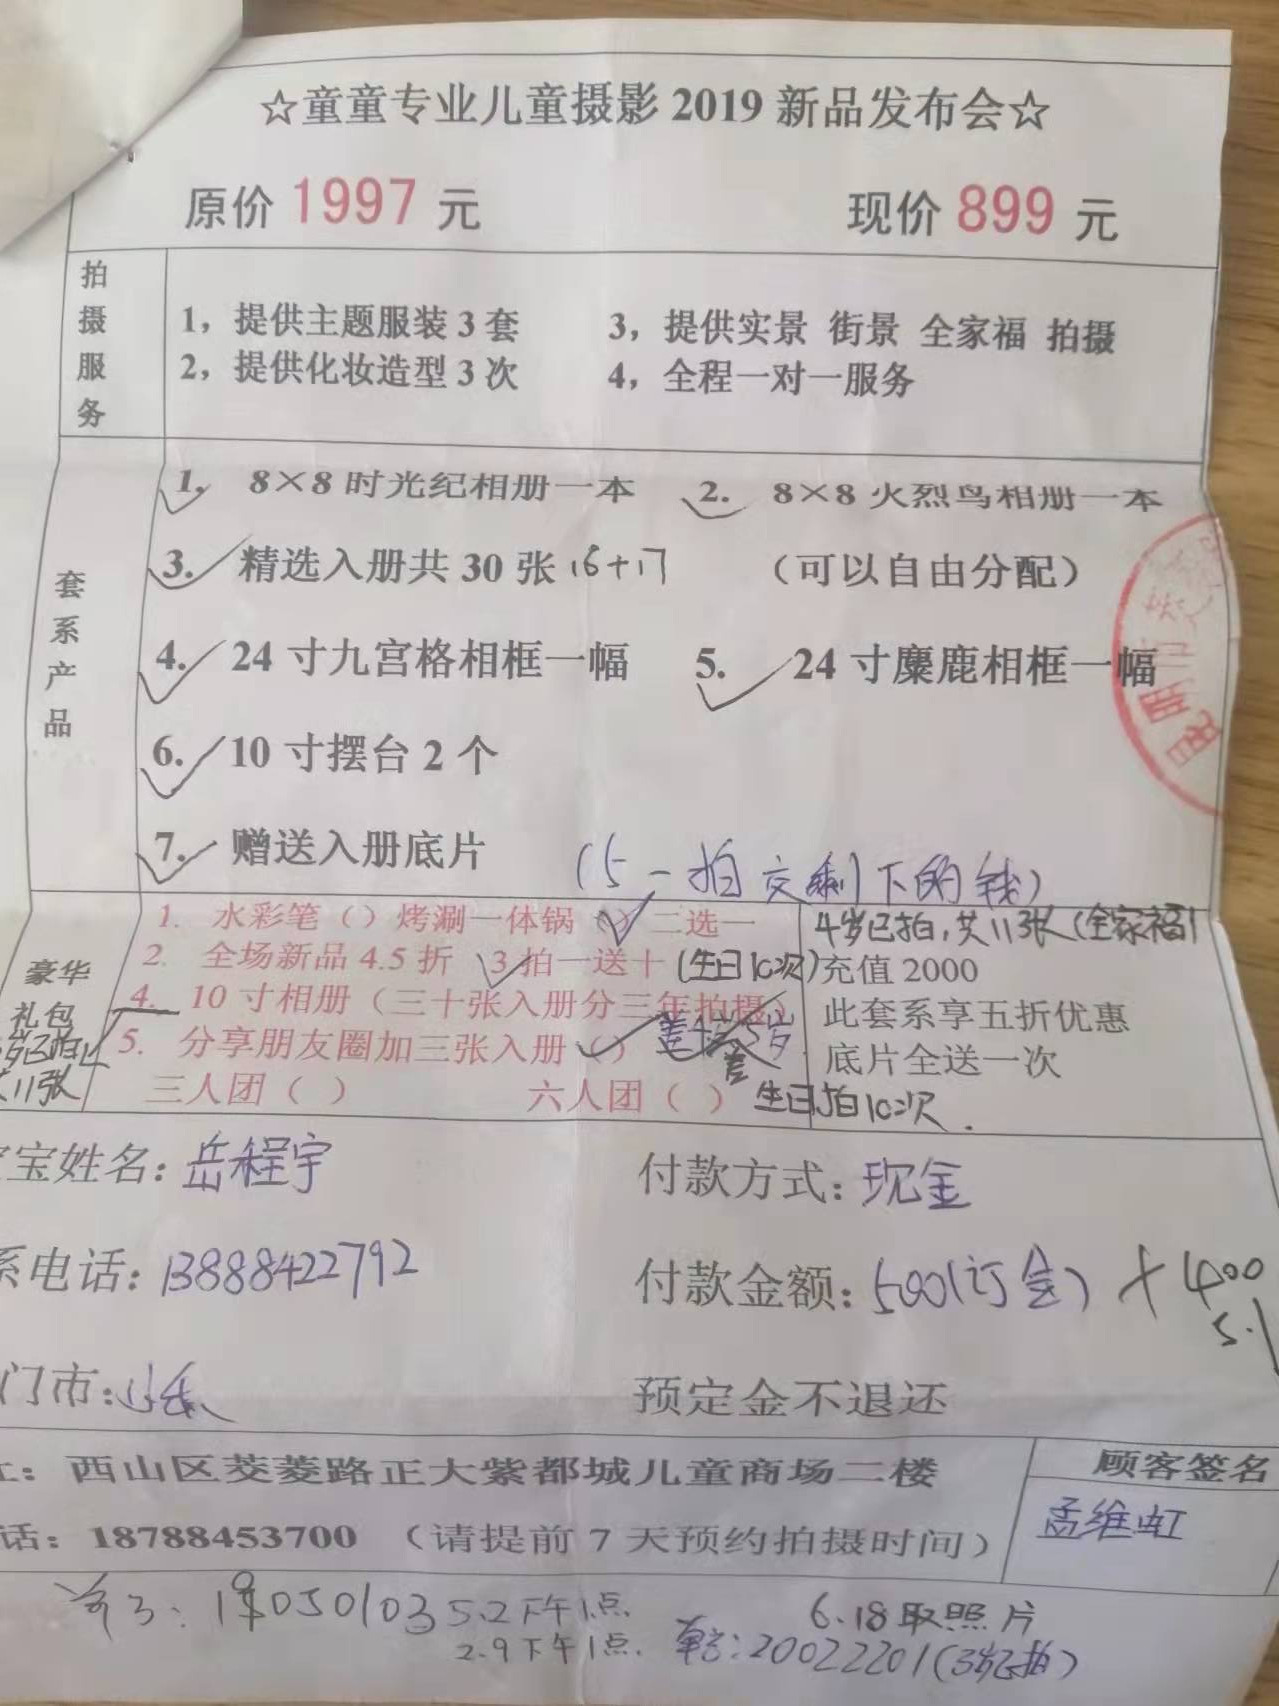 ☆童童专业儿童摄影 2019 新品发布会☆
原价 1997 元 现价 899 元
拍摄服务
1，提供主题服装 3 套 3，提供实景 街景 全家福 拍摄
2，提供化妆造型 3 次 4，全程一对一服务
套系产品
1. 8×8 时光纪相册一本 2. 8×8 火烈鸟相册一本
3. 精选入册共 30 张 16+17 （可以自由分配）
4. 24 寸九宫格相框一幅 5. 24 寸麋鹿相框一幅
6. 10 寸摆台 2 个
7. 赠送入册底片 （5一拍交剩下的钱）
昆明市
豪华礼包
1. 水彩笔（）烤涮一体锅（）二选一
2. 全场新品 4.5 折 3 拍一送十（生日10次）
4. 10 寸相册（三十张入册分三年拍摄）
5. 分享朋友圈加三张入册（） 5岁
三人团（ ） 六人团（ ） 生日拍10次.
4岁已拍,共11张(全家福)
充值 2000
此套系享五折优惠
底片全送一次
岁已拍
11张
宝姓名: 岳程宇 付款方式: 现金
系电话: 13888422792 付款金额: 500(订金) + 400
5.1
门市: 预定金不退还
: 西山区茭菱路正大紫都城儿童商场二楼 顾客签名
话: 18788453700 （请提前 7 天预约拍摄时间） 孟维虹
5.2下午1点. 6.18取照片
2.9下午1点. 单号:20022201(3岁已拍)